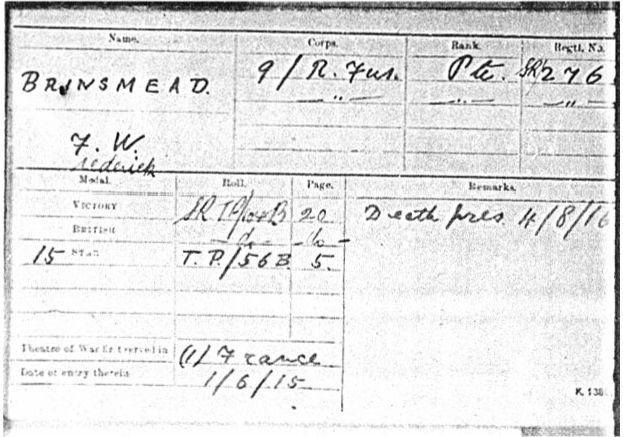 Name. Corps. Rank. Regtl. No.
BRINSMEAD. 9/R. Fus. Pte. SR 276
— „ — — „ — — „ —
F. W.
Frederick
Medal. Roll. Page. Remarks.
VICTORY 20 Death pres. 4/8/16
BRITISH — do — — do —
15 STAR T.P./56B. 5.
Theatre of War first served in (1) France
Date of entry therein 1/6/15
K. 1380